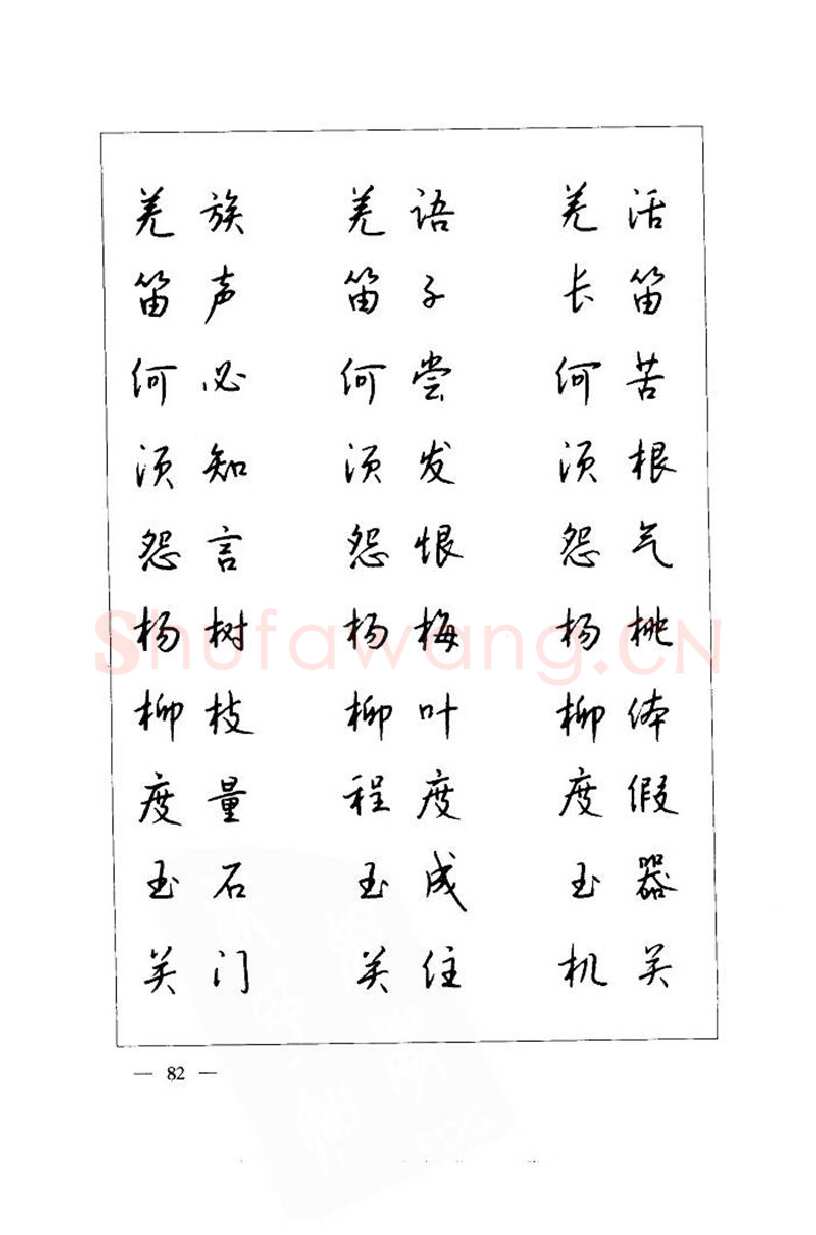 羌族 羌语 羌活
笛声 笛子 长笛
何必 何尝 何苦
须知 须发 须根
怨言 怨恨 怨气
杨树 杨梅 杨桃
柳枝 柳叶 柳体
度量 程度 度假
玉石 玉成 玉器
关门 关住 机关
Shufawang.CN
— 82 —